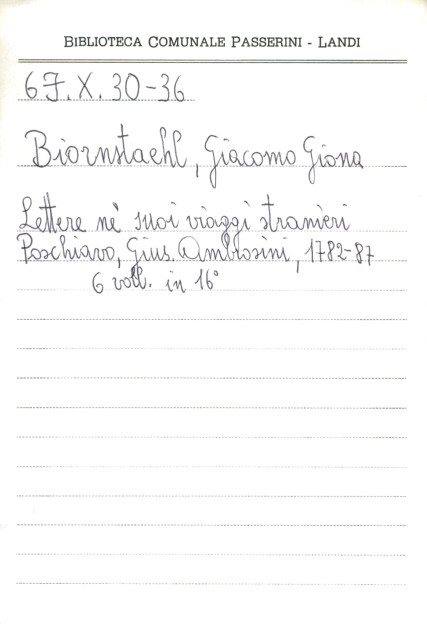 BIBLIOTECA COMUNALE PASSERINI - LANDI
6J.X.30-36
Biornstaehl, Giacomo Giona
Lettere nè suoi viaggi stranieri
Poschiavo, Gius. Ambrosini, 1782-87
6 voll. in 16°